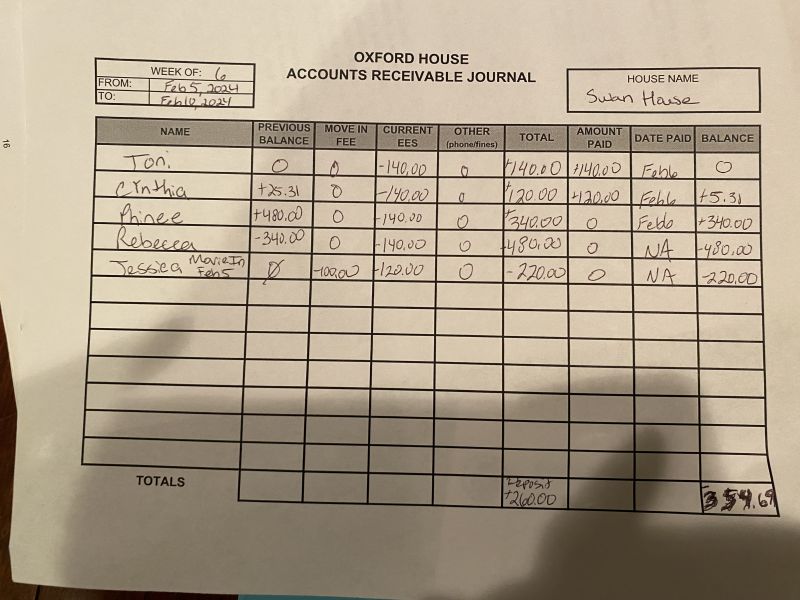 OXFORD HOUSE
ACCOUNTS RECEIVABLE JOURNAL
WEEK OF: 6
FROM: Feb 5, 2024
TO: Feb 10, 2024
HOUSE NAME
Swan House
16
NAME PREVIOUS BALANCE MOVE IN FEE CURRENT EES OTHER (phone/fines) TOTAL AMOUNT PAID DATE PAID BALANCE
Toni 0 0 -140.00 0 +140.00 +140.00 Feb6 0
Cynthia +25.31 0 -140.00 0 +120.00 +120.00 Feb6 +5.31
Phinee +480.00 0 -140.00 0 +340.00 0 Feb6 +340.00
Rebecca -340.00 0 -140.00 0 -480.00 0 NA -480.00
Jessica Move In Feb 5 0 -100.00 -120.00 0 -220.00 0 NA -220.00
TOTALS Deposit +260.00 -354.69